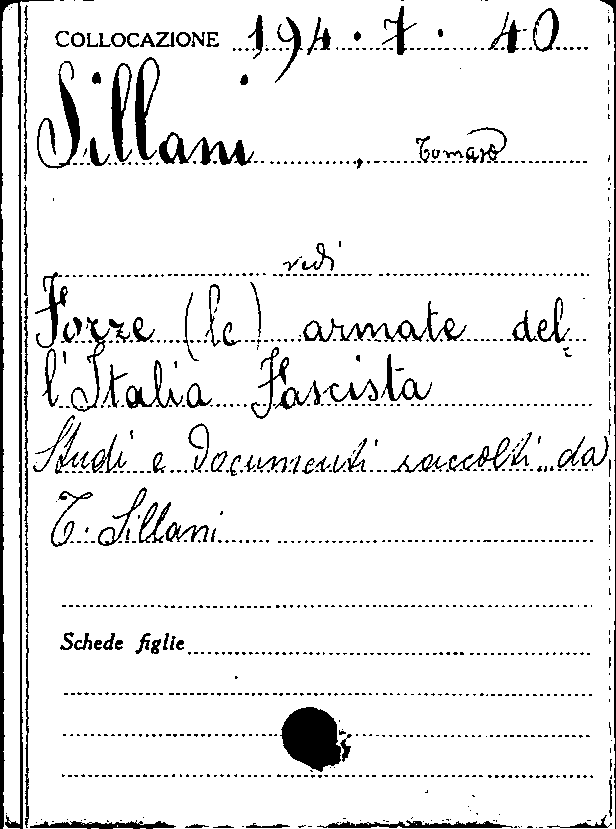 COLLOCAZIONE 194 . 7 . 40
Sillani , Tomaso
vedi
Forze (le) armate del=
l'Italia Fascista
Studi e Documenti raccolti da
T. Sillani
Schede figlie